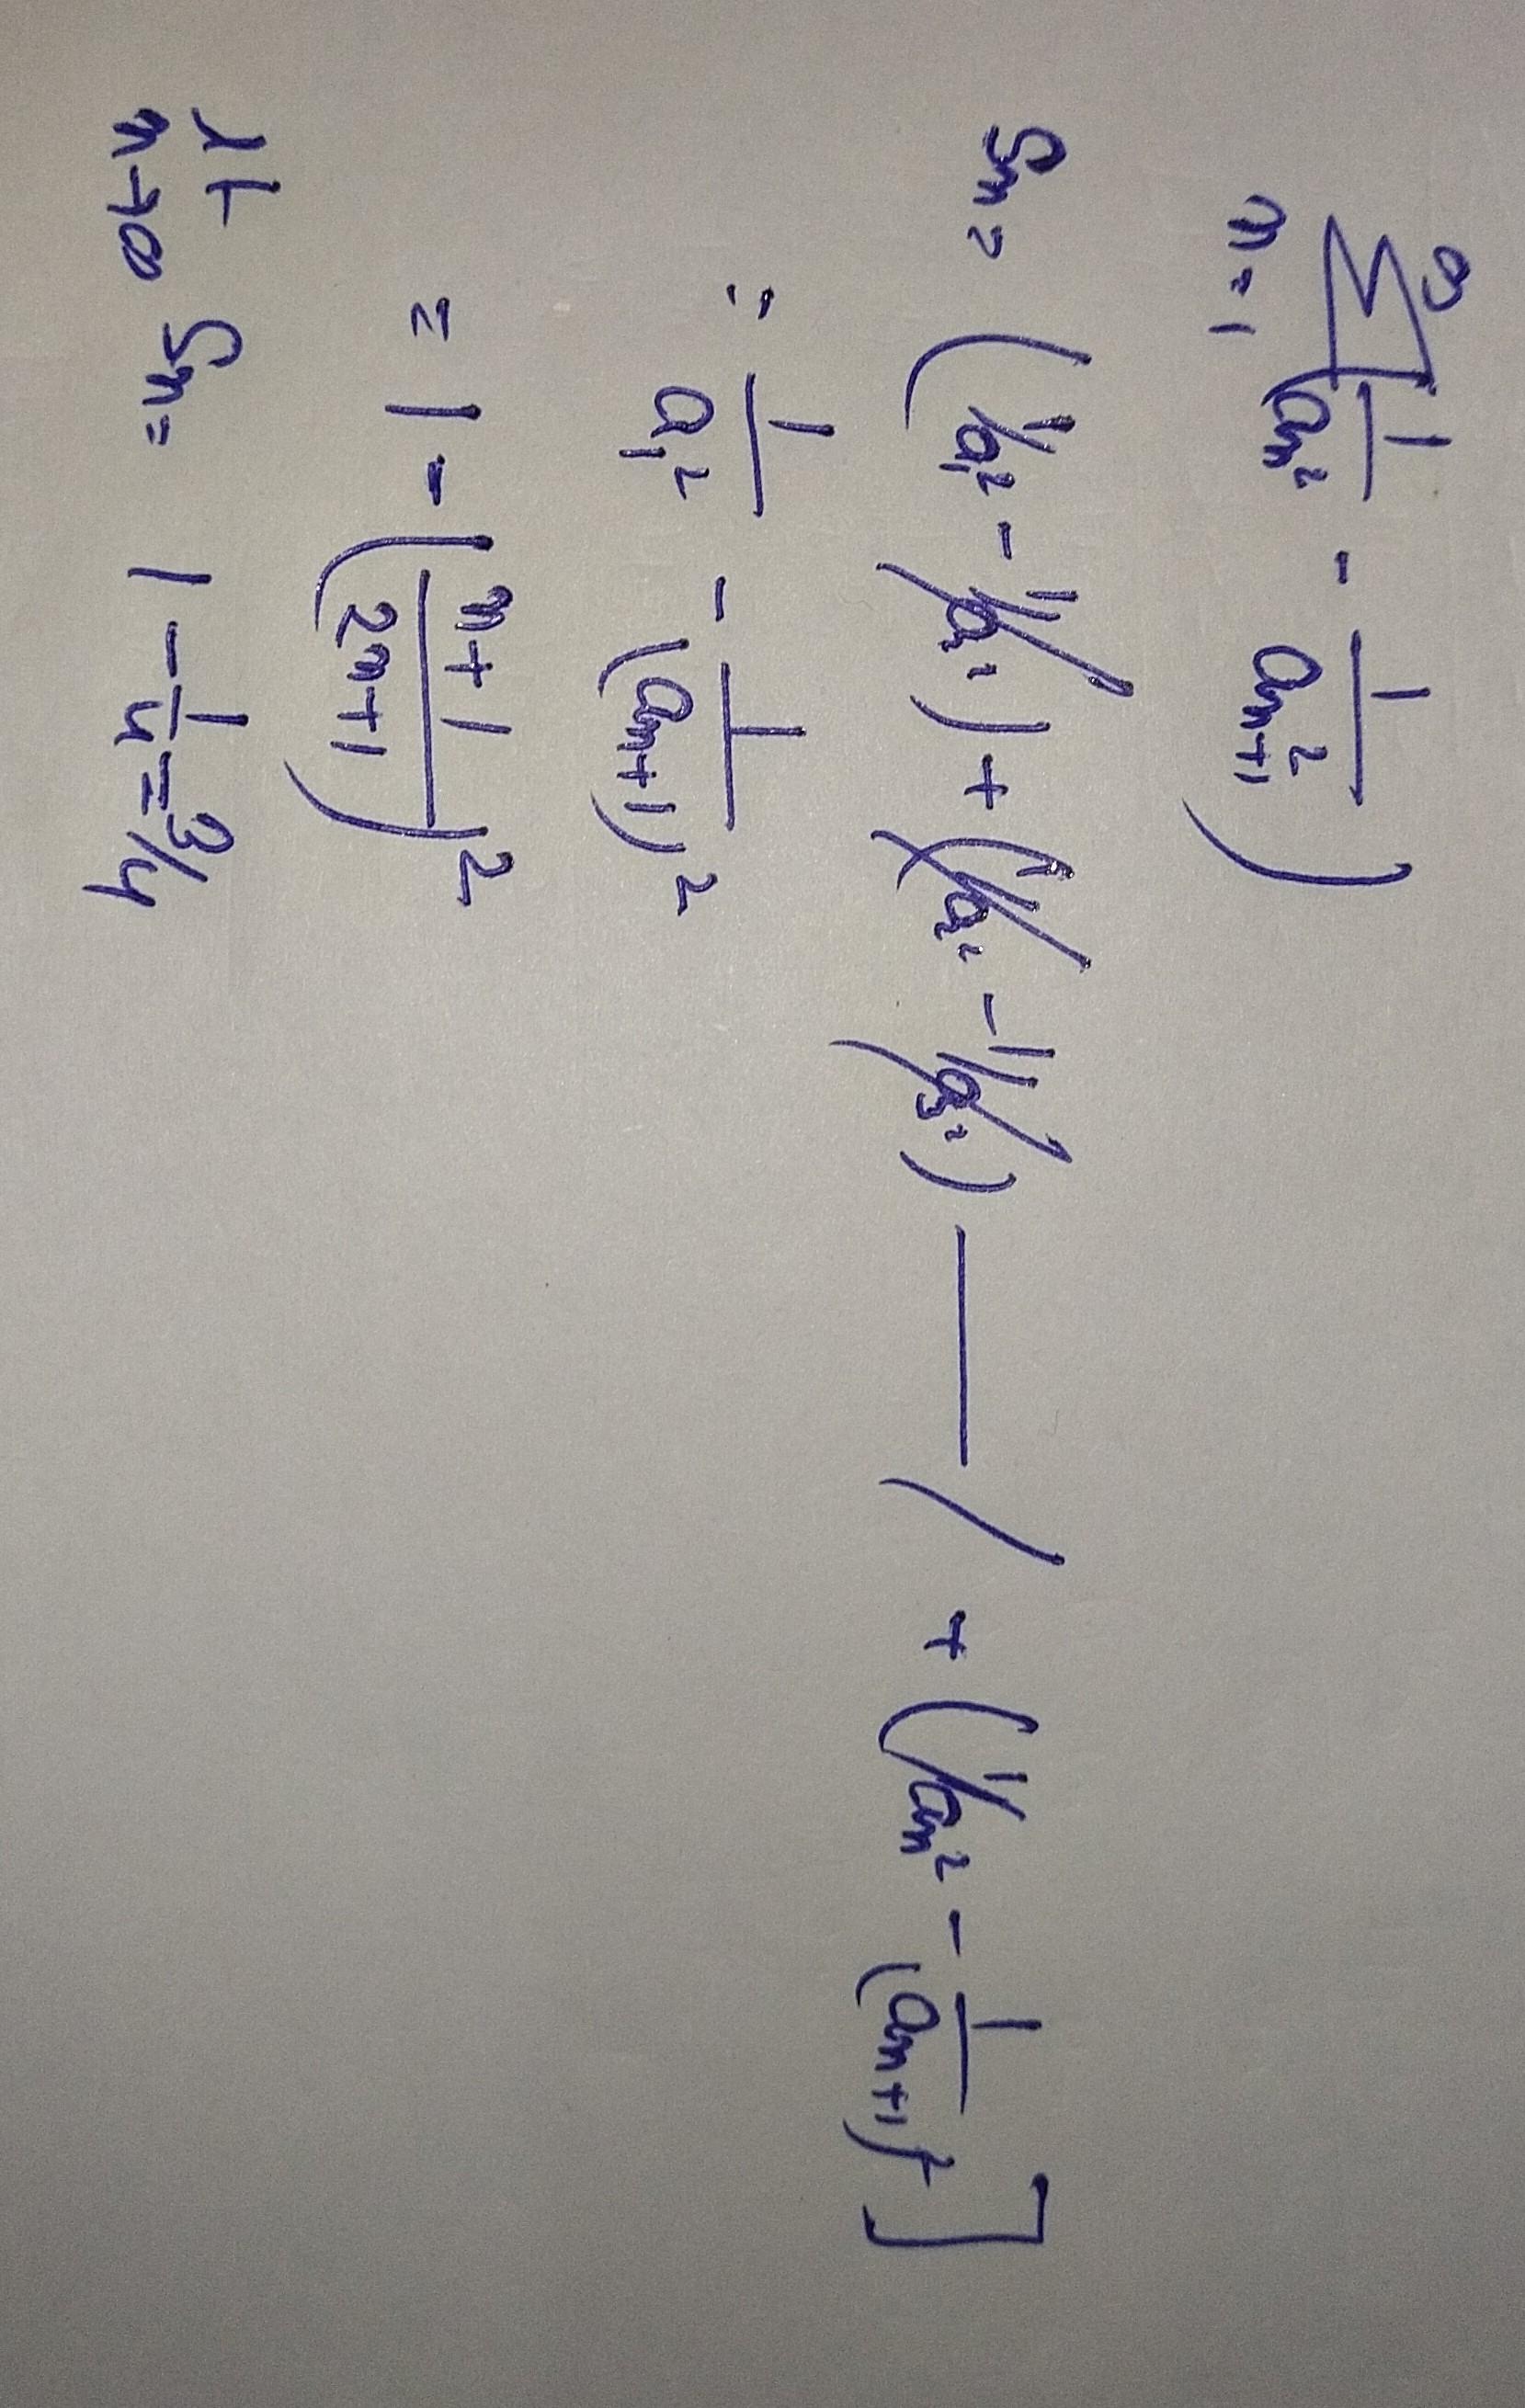 ∞
∑ (1/aₙ² - 1/aₙ₊₁²)
n=1
Sₙ = (1/a₁² - 1/a₂²) + (1/a₂² - 1/a₃²) —— / + (1/aₙ² - 1/(aₙ₊₁)²]
: 1/a₁² - 1/(aₙ₊₁)²
= 1 - (n+1/2n+1)²
lt n→∞ Sₙ = 1 - 1/4 = 3/4